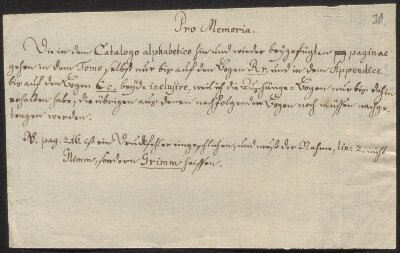 30
Pro Memoria.
Die in dem Catalogo alphabetico hin und wieder beygefügten paginae
gehen in dem Tomo selbst nur bis auf den Bogen Rr. und in dem Appendice
bis auf den Bogen Ccc. beyde inclusive, weil ich die Aushänge-Bogen nur bis dahin
erhalten habe; die übrigen aus denen nachfolgenden Bogen noch müssen nachge-
tragen werden.
NB. pag. 216. ist ein Druckfehler eingeschlichen, und muß der Nahme, lin. 2. nicht
Glimm, sondern Grimm heissen.